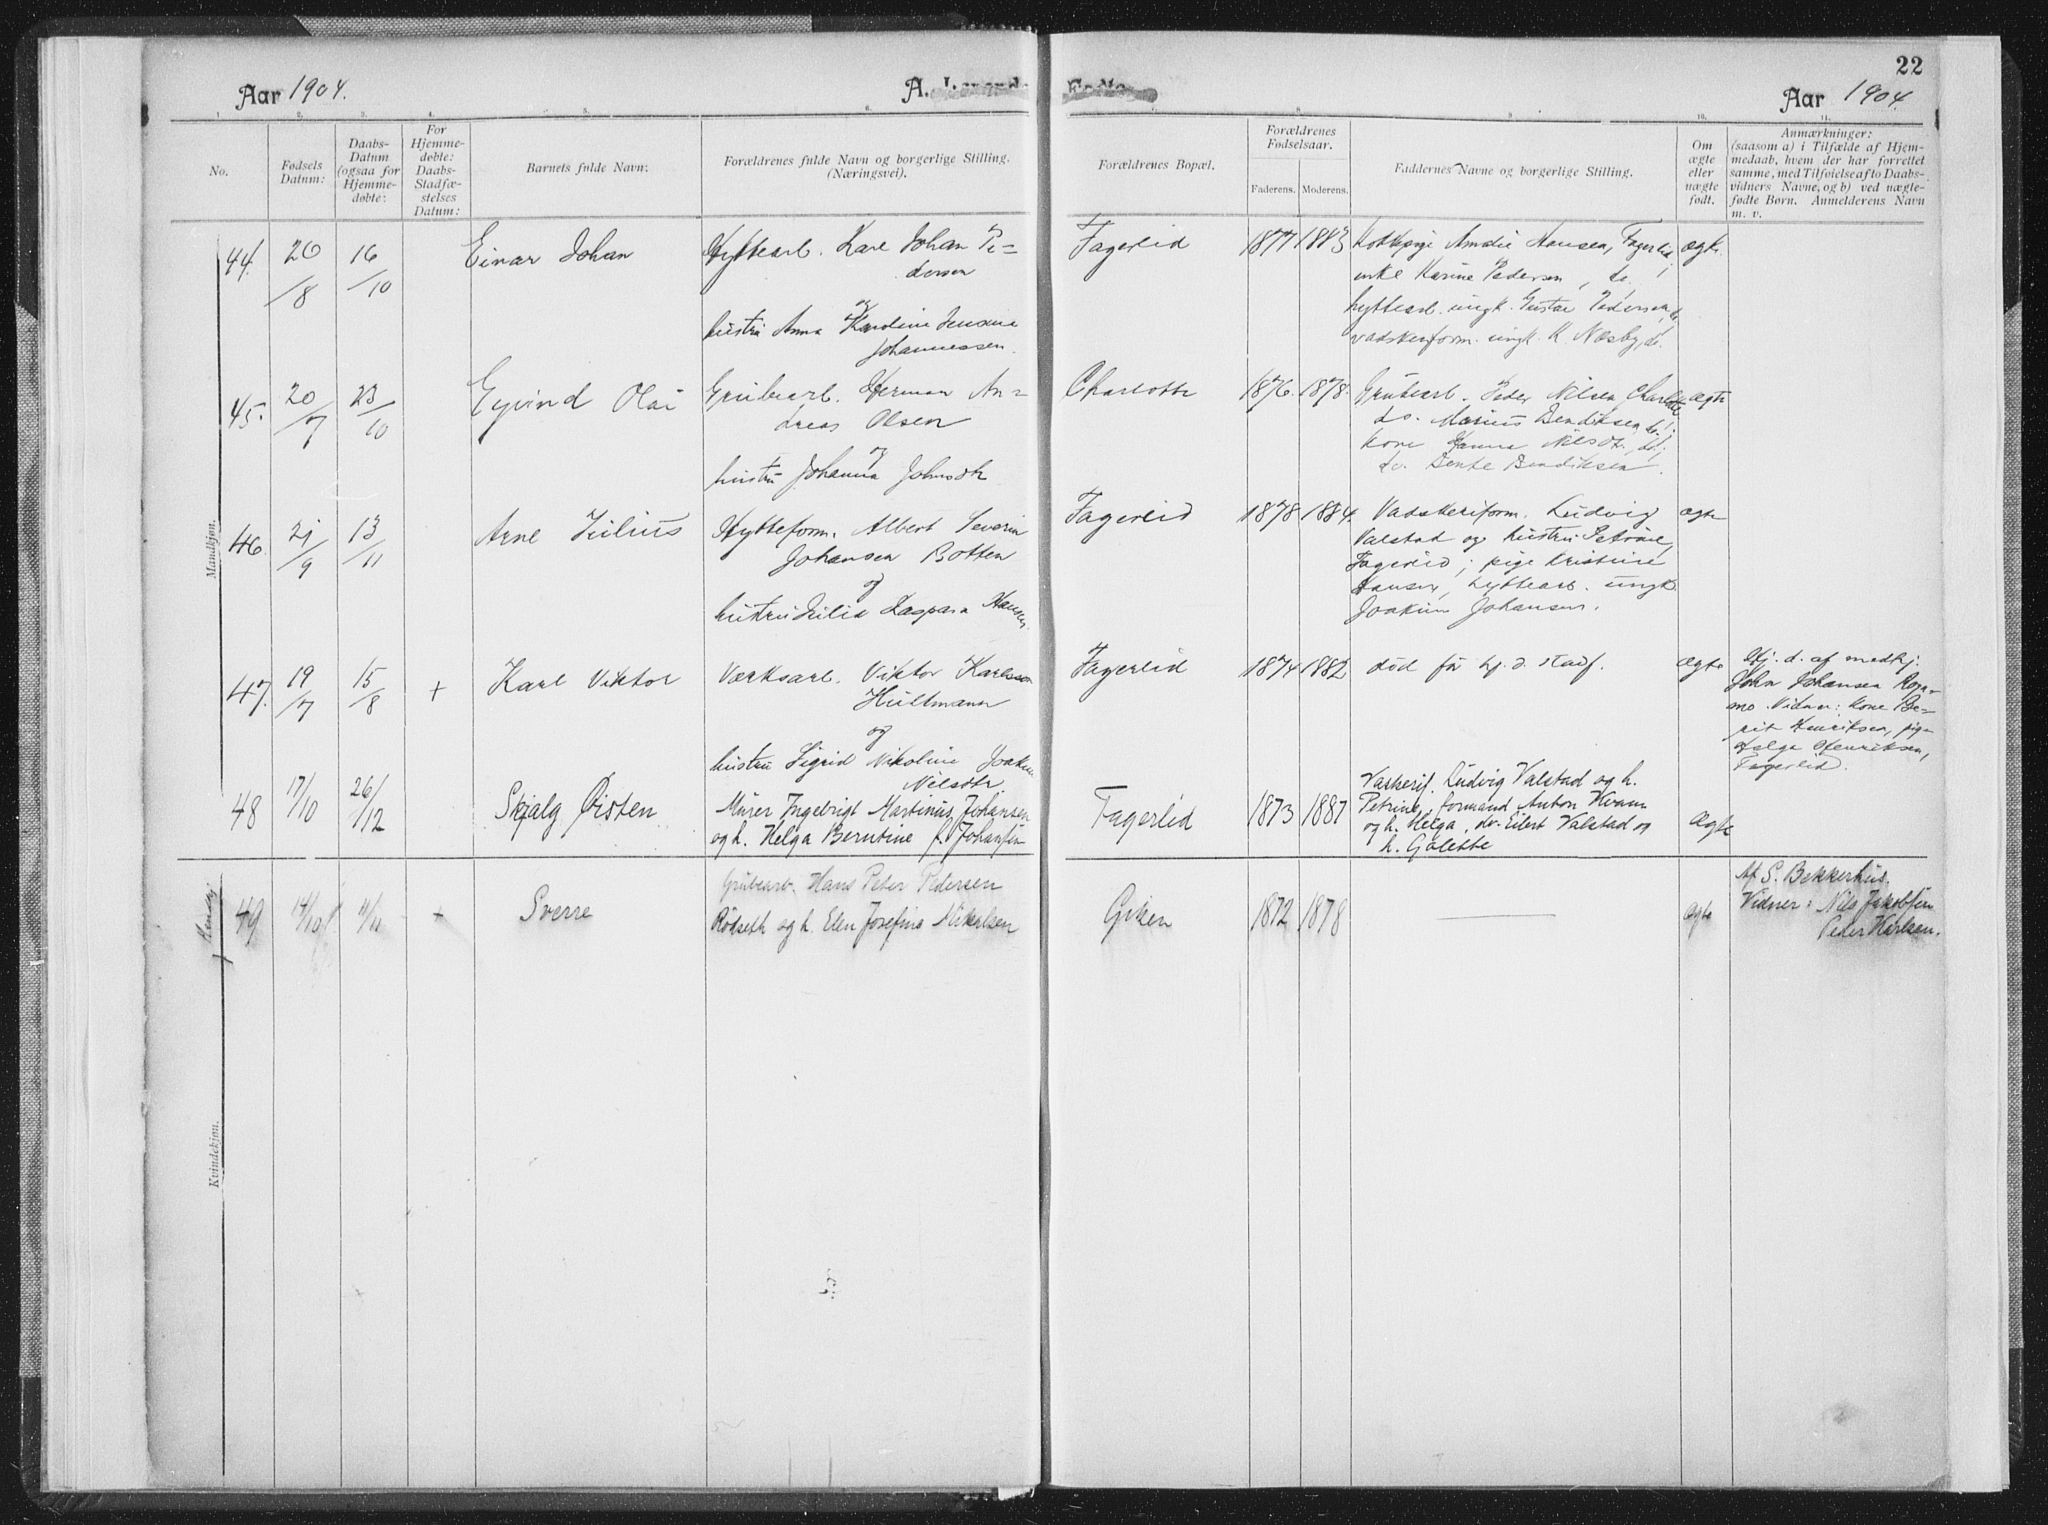 22
Aar 1904.
A. Levende Fødte
Aar 1904.
1. 2. 3. 4. 5. 6. 8. 9. 10. 11.
No.
Fødsels
Datum:
Daabs-
Datum
(ogsaa for
Hjemme-
døbte:
For
Hjemme-
døbte:
Daabs-
Stadfæ-
stelses
Datum:
Barnets fulde Navn:
Forældrenes fulde Navn og borgerlige Stilling.
(Næringsvei).
Forældrenes Bopæl.
Forældrenes
Fødselsaar.
Faderens. Moderens.
Faddernes Navne og borgerlige Stilling.
Om
ægte
eller
uægte
født.
Anmærkninger:
(saasom a) i Tilfælde af Hjem-
medaab, hvem der har forrettet
samme, med Tilføielse af to Daabs-
vidners Navne, og b) ved uægte-
fødte Børn. Anmelderens Navn
m. v.
Mandkjøn.
44. 20/8 16/10 Einar Johan
Hyttearb. Karl Johan Pe-
dersen
og
hustru Anna Karoline Jensine
Johannessen.
Fagerlid 1877 1883
Kokkepige Amalie Hansen, Fagerlid;
enke Karine Pedersen, do.
hyttearb. ungk. Gustav Pedersen, do.
vadskeriform. ungk. K. Næsby, do.
ægte
45. 20/7 23/10 Eyvind Olai
Grubearb. Herman An-
dreas Olsen
og
hustru Johanna Johnsdtr.
Charlotta 1876. 1878.
Grubearb. Peder Nilsen Charlotta
do. Marius Bendiksen do.;
kone Hanna Nilsdtr., do.;
do. Bente Bendiksen.
ægte
46. 21/9 13/11 Arne Julius
Hytteform. Albert Severin
Johansen Botten
og
hustru Julia Kaspara Hansen.
Fagerlid 1878 1884.
Vadskeriform. Ludvig
Valstad og hustru Petrine,
Fagerlid; pige Kristine
Hansen, hyttearb. ungk.
Joakim Johansen.
ægte
47. 19/7 15/8 + Karl Viktor
Værksarb. Viktor Karlsson
Hultmann
og
hustru Sigrid Nikoline Joakim
Nilsdtr.
Fagerlid 1874 1882
død før hj. d. stadf.
ægte
Hj. d. af medhj.
John Johansen Rogn-
mo. Vidner: kone Be-
rit Henriksen, pige
Helga Henriksen,
Fagerlid.
48 17/10 26/12 Skjalg Øisten
Murer Ingebrigt Martinus Johansen
og h. Helga Berntine f. Johansen
Fagerlid 1873 1887
Vaskerif. Ludvig Valstad og h.
Petrine, formand Anton Kvam
og h. Helga, do. Eilert Valstad og
h. Golette
ægte
49 14/10 11/11 + Sverre
Grubearb. Hans Peter Pedersen
Rödseth og h. Elen Josefine Mikalsen
Giken 1872 1878
ægte
Af S. Bekkerhus.
Vidner: Nils Jakobsen
Peder Karlsen.
Kvindekjøn.